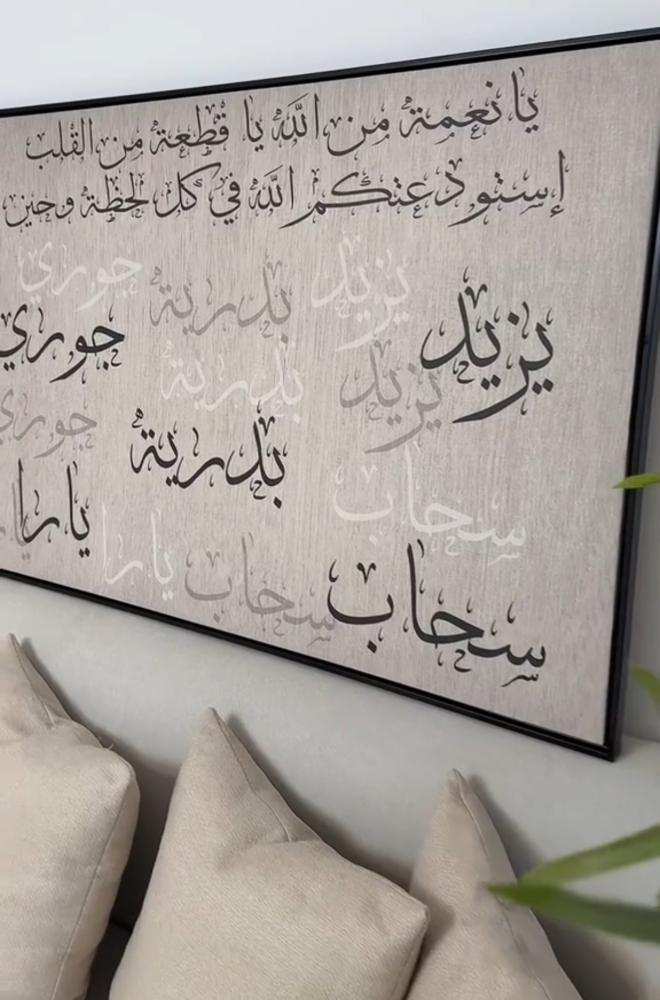 يا نعمة من الله يا قطعة من القلب
إستودعتكم الله في كل لحظة وحين
يزيد بدرية جوري
يزيد جوري
يزيد بدرية
جوري
بدرية
سحاب
يارا
يارا
سحاب
سحاب